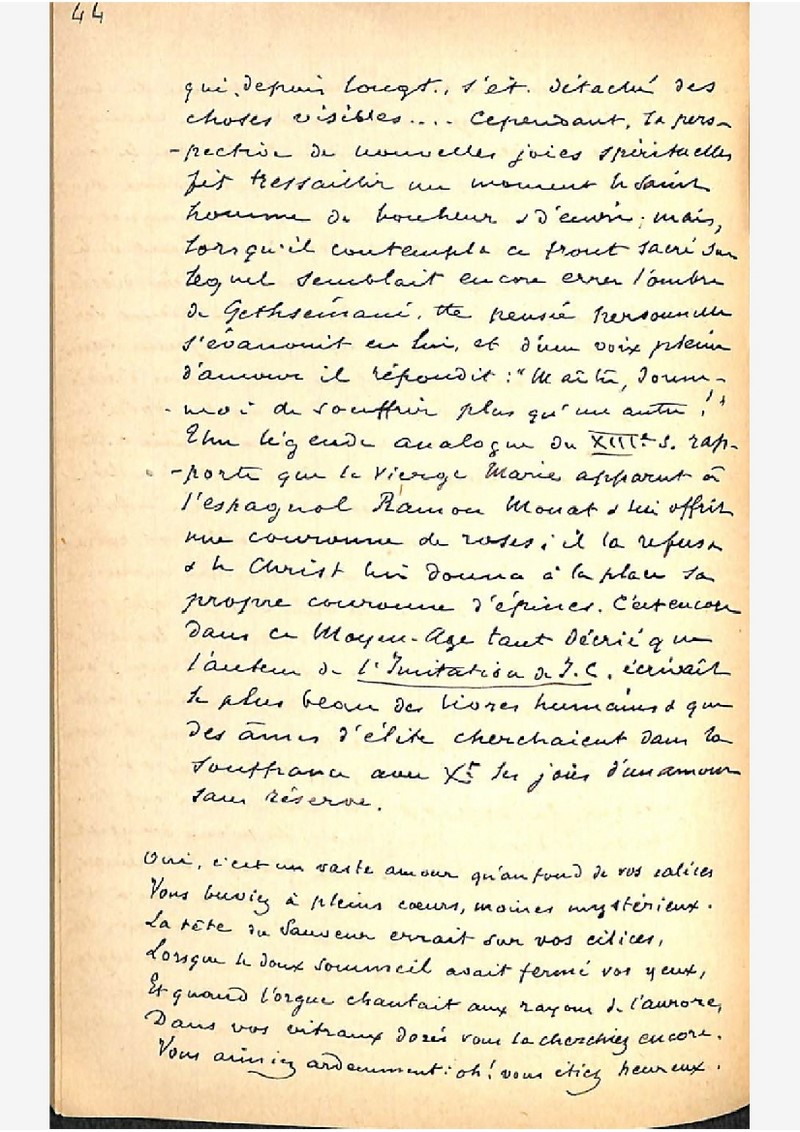 44
qui, depuis longt., s'ét. détaché des
choses visibles.... Cependant, la pers-
-pective de nouvelles joies spirituelles
fit tressaillir un moment le saint
homme de bonheur & d'envie; mais,
lorsqu'il contempla ce front sacré sur
lequel semblait encore errer l'ombre
de Gethsémani, tte pensée personnelle
s'évanouit en lui, et d'une voix pleine
d'amour il répondit : "Maître, donne-
moi de souffrir plus qu'un autre !"
Une légende analogue du XIIIe s. rap-
-porte que la Vierge Marie apparut à
l'espagnol Ramon Monat & lui offrit
une couronne de roses; il la refusa
& le Christ lui donna à la place sa
propre couronne d'épines. C'est encore
dans ce Moyen-Age tant décrié que
l'auteur de l'Imitation de J.C. écrivait
le plus beau des livres humains & que
des âmes d'élite cherchaient dans la
souffrance avec Xt les joies d'un amour
sans réserve.
Oui, c'est un vaste amour qu'au fond de vos calices
Vous buviez à pleins cœurs, moines mystérieux.
La tête du Sauveur errait sur vos cilices,
Lorsque le doux sommeil avait fermé vos yeux,
Et quand l'orgue chantait aux rayons de l'aurore,
Dans vos vitraux dorés vous la cherchiez encore.
Vous aimiez ardemment : oh! vous étiez heureux.